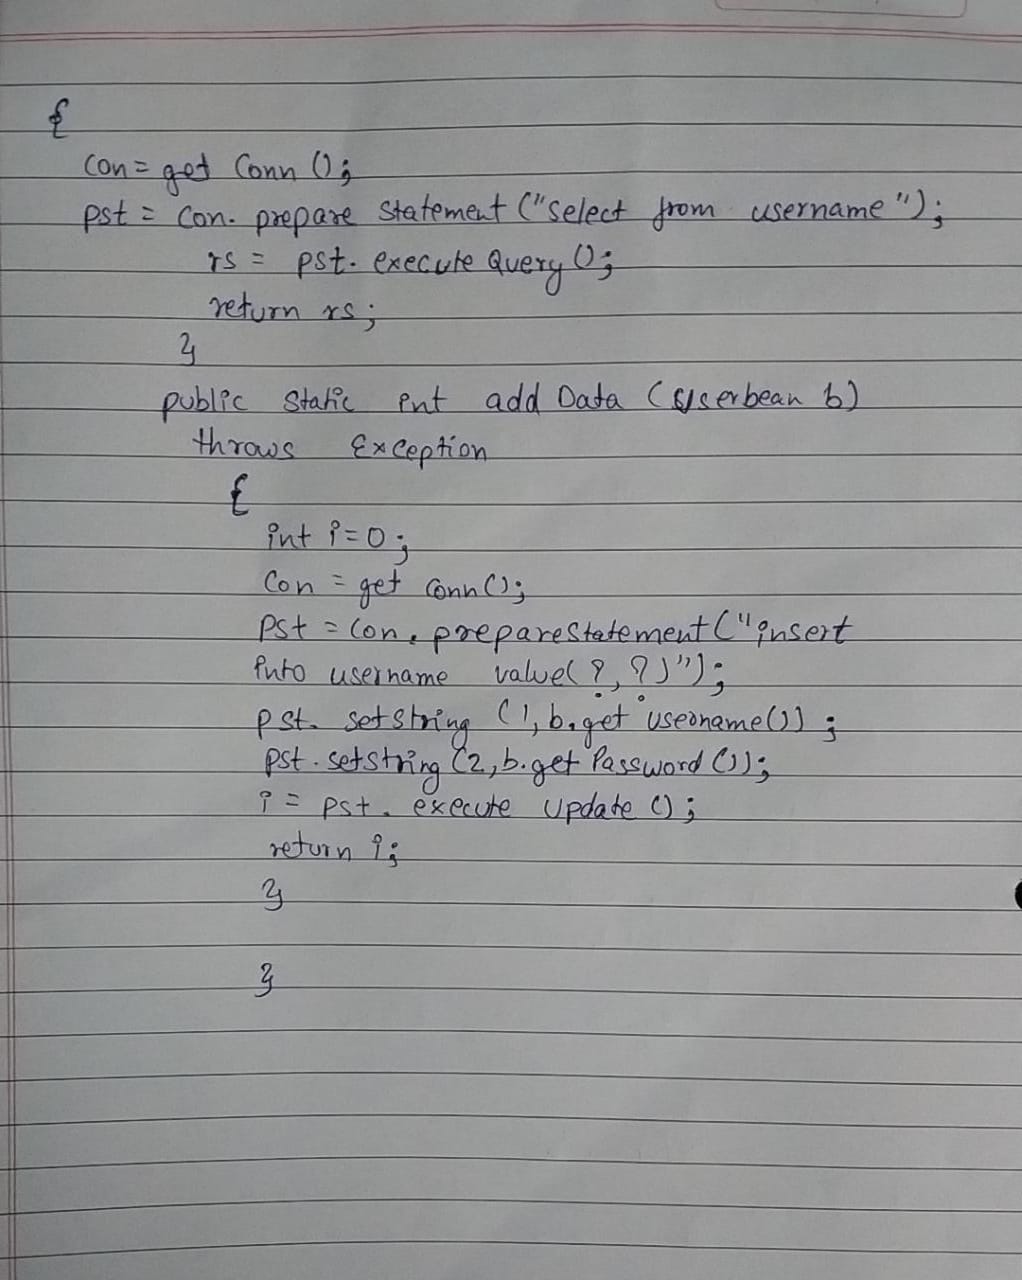 {
Con = get Conn ();
pst = Con. prepare Statement ("select from username");
rs = pst. execute Query ();
return rs;
}
public static int add Data (Userbean b)
throws Exception
{
int i=0;
Con = get Conn();
Pst = Con. preparestatement ("insert
into username value(?, ?)");
pst. setstring (1, b.get username());
pst. setstring (2, b. get Password ());
i = pst. execute Update ();
return i;
}
}